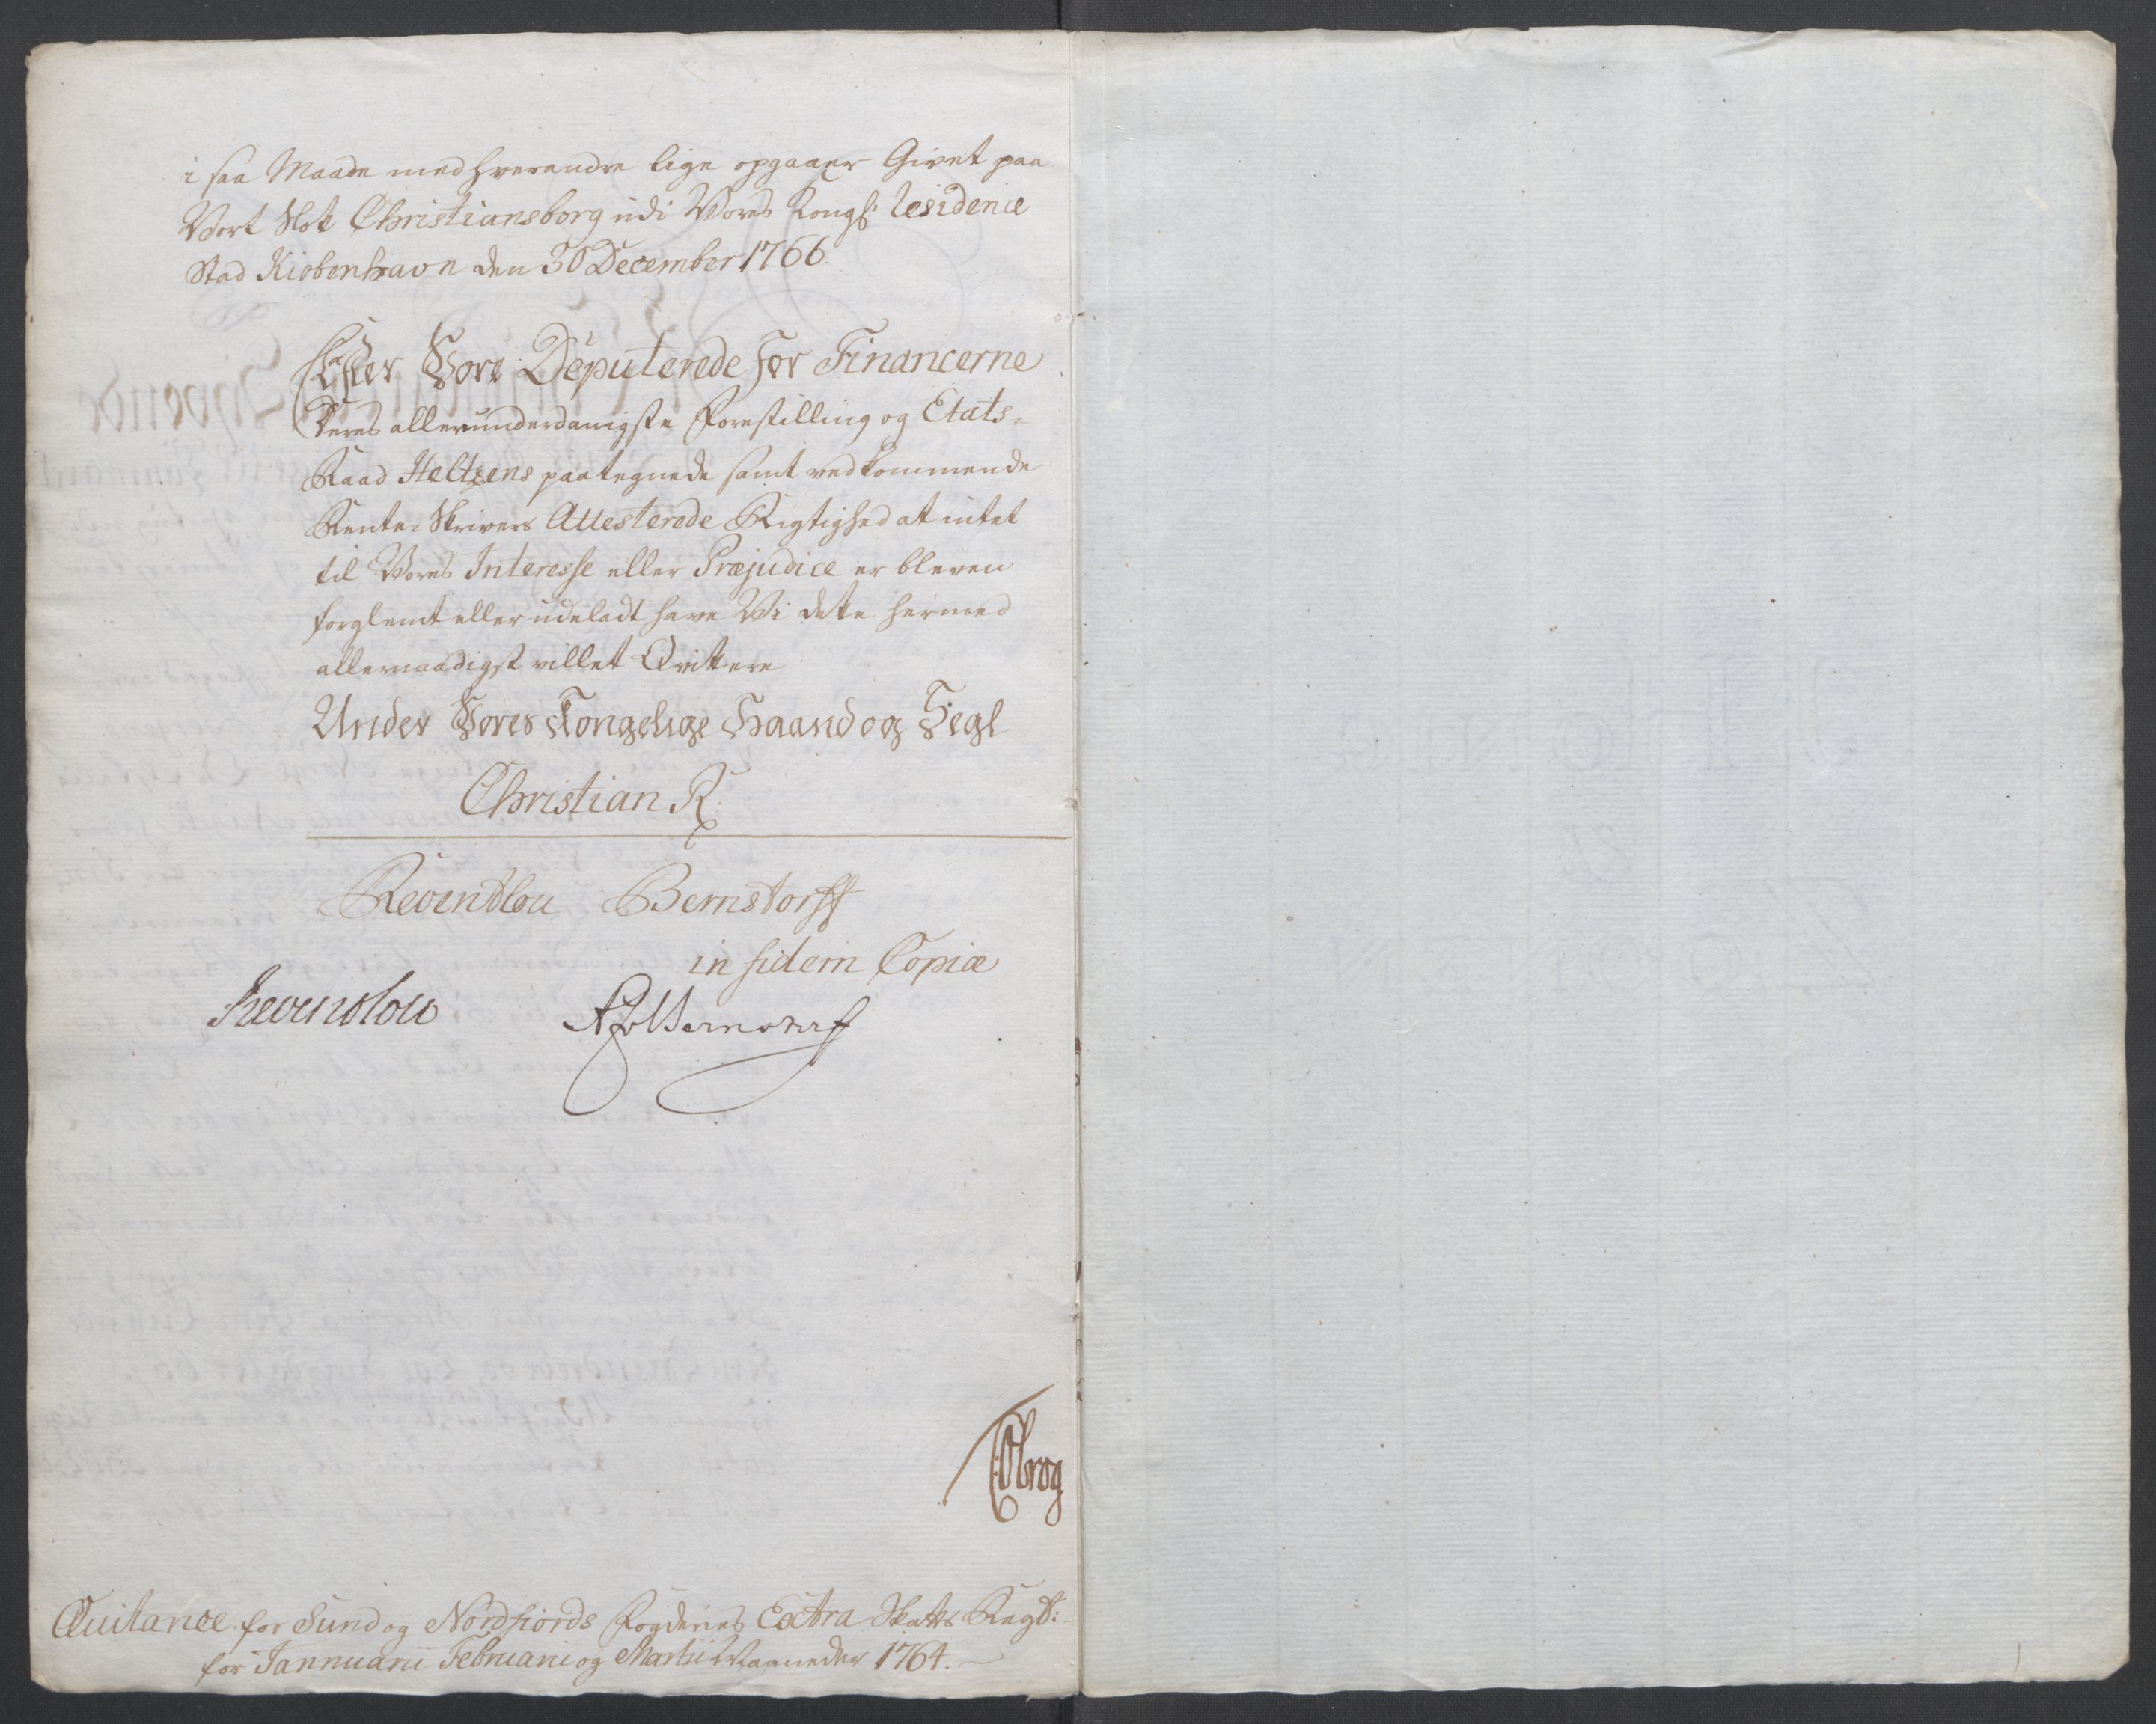 i saa Maade med hverandre lige opgaaer Givet paa
Vort Slot Christiansborg udi Vores Kongl: Residence
Stad Kiøbenhavn den 30 December 1766
Efter Vore Deputerede for Financerne
Deres allerunderdanigste Forestilling og Etats-
Raad Heltzens paategnede samt vedkommende
Rente-Skrivers Attesterede Rigtighed at intet
til Vores Interesse eller Præjudice er bleven
forglemt eller udeladt have Vi dette hermed
allernaadigst villet Qvittere
Under Vores Kongelige Haand og Segl
Christian R.
Reventlou Bernstorff
in fidem Copiæ
Reventlou APBernstorff
Qvitance for Sund og Nordfiords Fogderies Extra Skatts Regsk:
for Jannuarii Februarii og Martii Maaneder 1764.